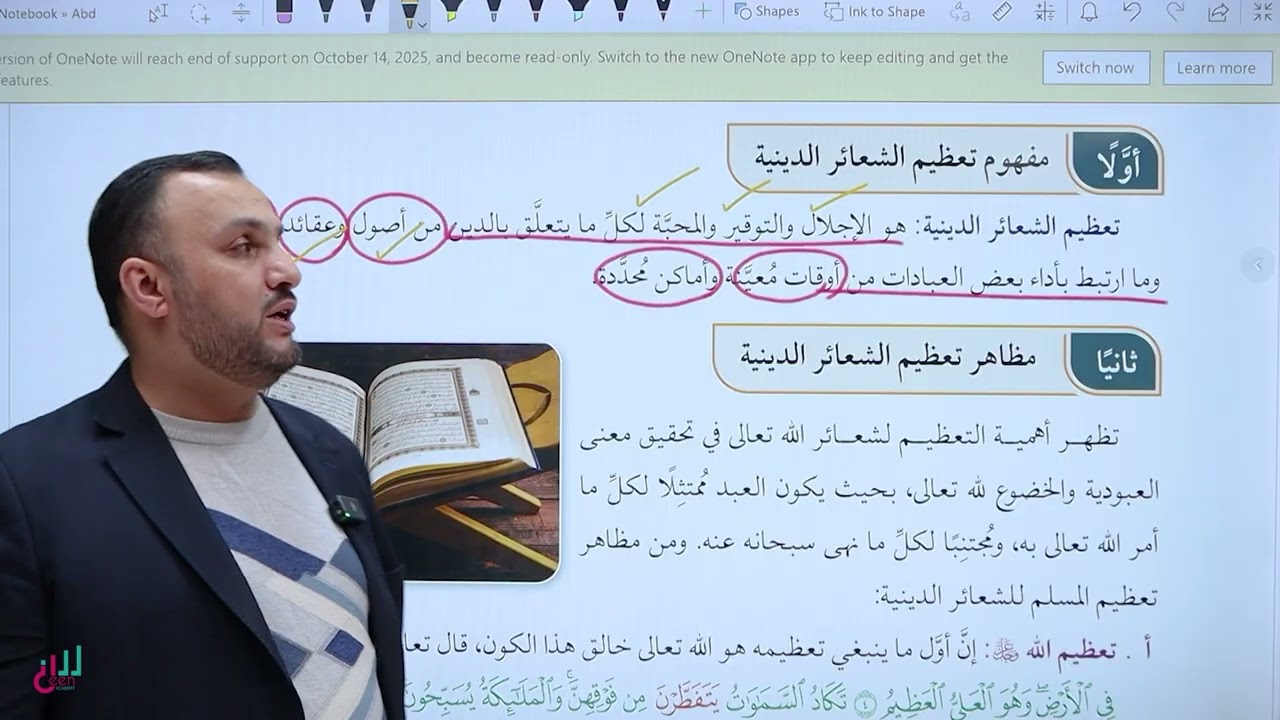 Notebook » Abd
Shapes
Ink to Shape
ersion of OneNote will reach end of support on October 14, 2025, and become read-only. Switch to the new OneNote app to keep editing and get the
eatures.
Switch now
Learn more
أوَّلًا
مفهوم تعظيم الشعائر الدينية
تعظيم الشعائر الدينية: هو الإجلال والتوقير والمحبَّة لكلِّ ما يتعلَّق بالدين من أصول وعقائد
وما ارتبط بأداء بعض العبادات من أوقات مُعيَّنة وأماكن مُحدَّدة.
ثانيًا
مظاهر تعظيم الشعائر الدينية
تظهر أهمية التعظيم لشعائر الله تعالى في تحقيق معنى
العبودية والخضوع لله تعالى، بحيث يكون العبد مُمتثِلًا لكلِّ ما
أمر الله تعالى به، ومُجتنِبًا لكلِّ ما نهى سبحانه عنه. ومن مظاهر
تعظيم المسلم للشعائر الدينية:
أ . تعظيم الله ﷻ: إنَّ أوَّل ما ينبغي تعظيمه هو الله تعالى خالق هذا الكون، قال تعا
فِي ٱلۡأَرۡضِۖ وَهُوَ ٱلۡعَلِيُّ ٱلۡعَظِيمُ ۝٤ تَكَادُ ٱلسَّمَٰوَٰتُ يَتَفَطَّرۡنَ مِن فَوۡقِهِنَّۚ وَٱلۡمَلَٰٓئِكَةُ يُسَبِّحُونَ
een
ACADEMY